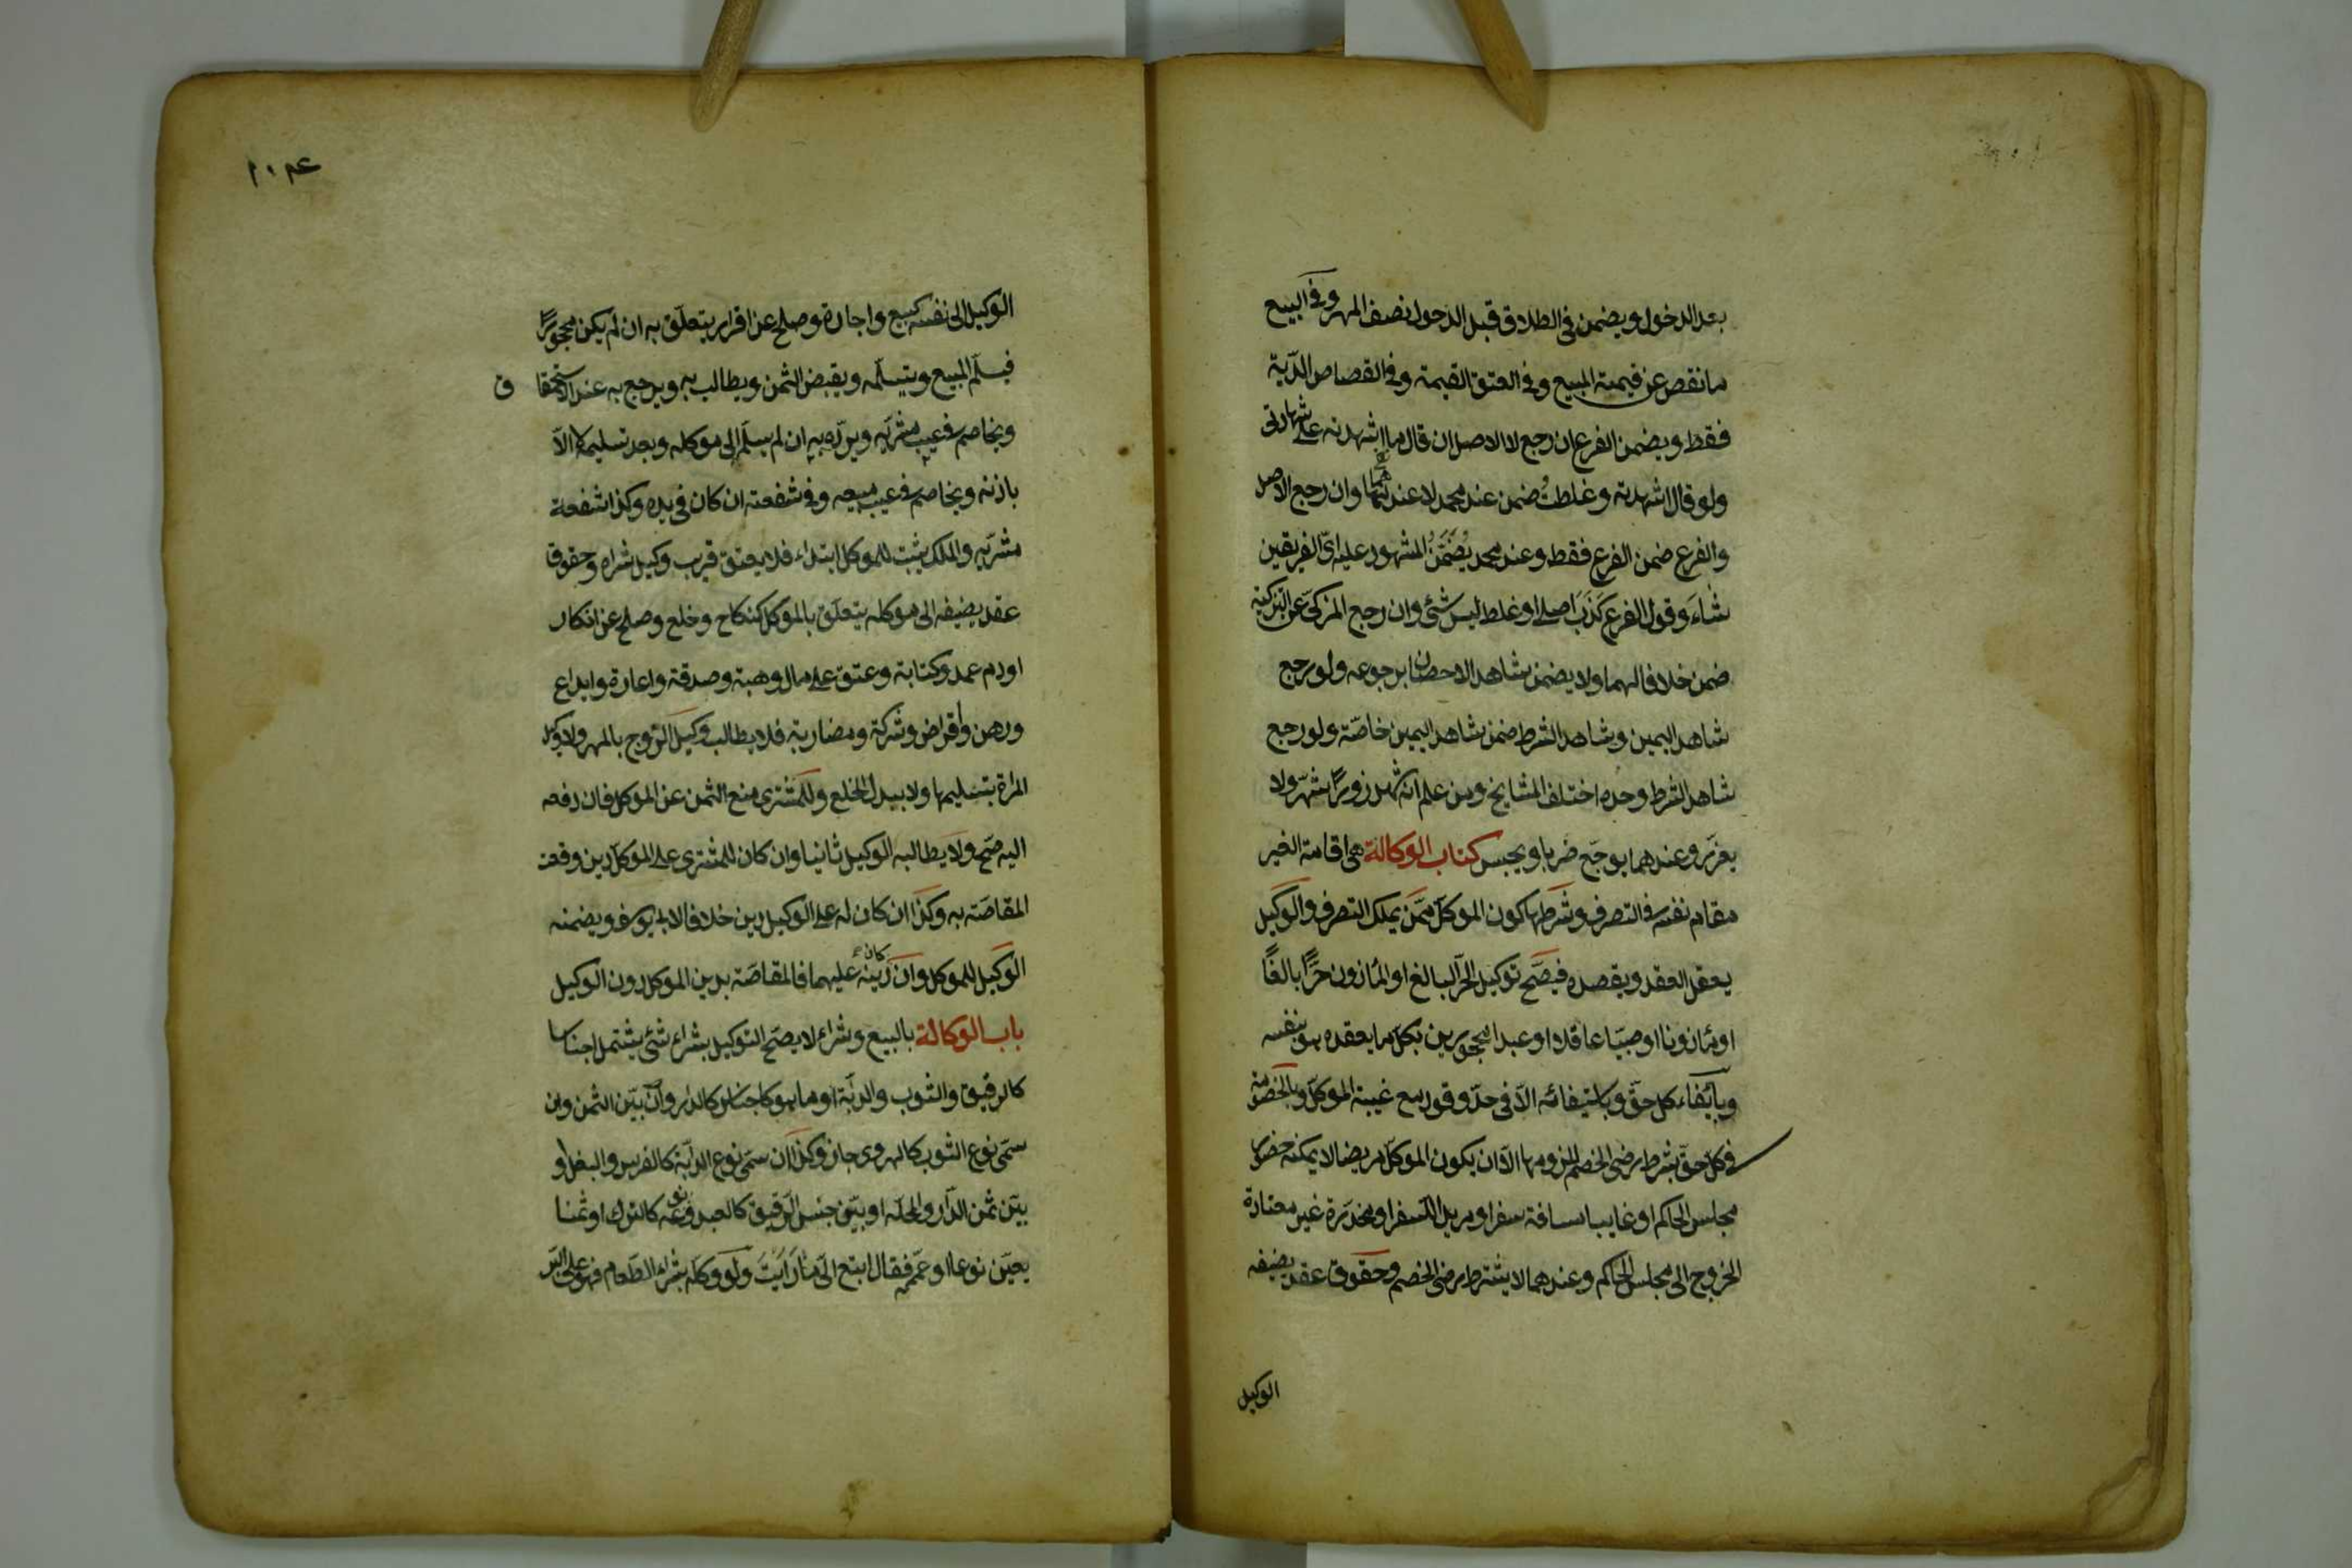 بعد الدخول ويضمن فى الطلاق قبل الدخول نصف المهر وفى البيع
ما نقص عن قيمة المبيع وفى العتق القيمة وفى القصاص الدّية
فقط ويضمن الفرع ان رجع لا الاصل ان قال ما اشهدته على شهادتى
ولو قال اشهدته وغلطتُ ضمن عند محمد لا عندهما وان رجع الاصل
والفرع ضمن الفرع فقط وعند محمد يُضَمَّنُ المشهود عليه اىّ الفريقين
شاءَ وقول الفرع كذَبَ اصلى او غلط ليس شئ وان رجع المزكىّ عن التزكية
ضمن خلافا لهما ولا يضمن شاهد الاحصان برجوعه ولو رجع
شاهد اليمين وشاهد الشرط ضمن شاهد اليمين خاصّة ولو رجع
شاهد الشرط وحده اختلف المشايخ ومن علم انه شهد زورًا شهّر ولا
يعزّر وعندهما يوجّع ضربا ويحبس كتاب الوكالة هى اقامة الغير
مقام نفسه فى التصرف وشرطها كون الموكّل ممّن يملك التصرف والوكيل
يعقل العقد ويقصده فيصحّ توكيل الحرّ البالغ او المأذون حرًّا بالغًا
او مأذونا او صبيّا عاقلا او عبدا محجورين بكلّ ما يعقده هو بنفسه
وبايفاء كل حقّ وباستيفائه الاّ فى حدّ وقود مع غيبة الموكلّ وبالخصومة
فى كل حقّ بشرط رضى الخصم للزومها الاّ ان يكون الموكّل مريضا لا يمكنه حضور
مجلس الحاكم او غايبا مسافة سفر او مريدا لسفر او مخدّرة غير معتادة
الخروج الى مجلس الحاكم وعندهما لا يشترط رضى الخصم وحقوق عقد يضيفه
الوكيل
الوكيل الى نفسه كبيع واجارة وصلح عن اقرار يتعلّق به ان لم يكن محجورًا
فيسلّم المبيع ويتسلّمه ويقبض الثمن ويطالب به ويرجع به عند الاستحقاق
ويخاصم فى عيب مشريّه ويردّه به ان لم يسلّم الى موكله وبعد تسليمه لا الاّ
باذنه ويخاصم فى عيب مبيعه وفى شفعته ان كان فى يده وكذا شفعة
مشريّه والملك يثبت للموكل ابتداء فلا يعتق قريب وكيل شراه وحقوق
عقد يضيفه الى موكله يتعلّق بالموكل كنكاح وخلع وصلح عن انكار
او دم عمد وكتابة وعتق على مال وهبة وصدقة واعارة وايداع
ورهن واقراض وشركة ومضاربة فلا يطالب وكيل الزّوج بالمهر ولا وكيل
المرأة بتسليمها ولا ببدل الخلع وللمشترى منع الثمن عن الموكل فان دفعه
اليه صحّ ولا يطالبه الوكيل ثانيا وان كان للمشترى على الموكل دين وقعت
المقاصّة به وكذا ان كان له على الوكيل دين خلافا لابى يوسف ويضمنه
الوكيل للموكل وان كان دينه عليهما فالمقاصّة بدين الموكل دون الوكيل
باب الوكالة بالبيع وشراء لا يصحّ التوكيل بشراء شئ يشتمل اجناسا
كالرقيق والثوب والدابّة او ما هو كاجناس كالدار وان بيّن الثمن وان
سمّى نوع الثوب كالهروى جاز وكذا ان سمّى نوع الدابّة كالفرس والبغل او
بيّن ثمن الدّار والمحلّه او بيّن جنس الرّقيق كالعبد ونوعه كالترك او ثمنا
يعيّن نوعا او عمّم فقال ابتع الىّ ما رَايْتَ ولو وكله بشراء الطّعام فهو على البّر